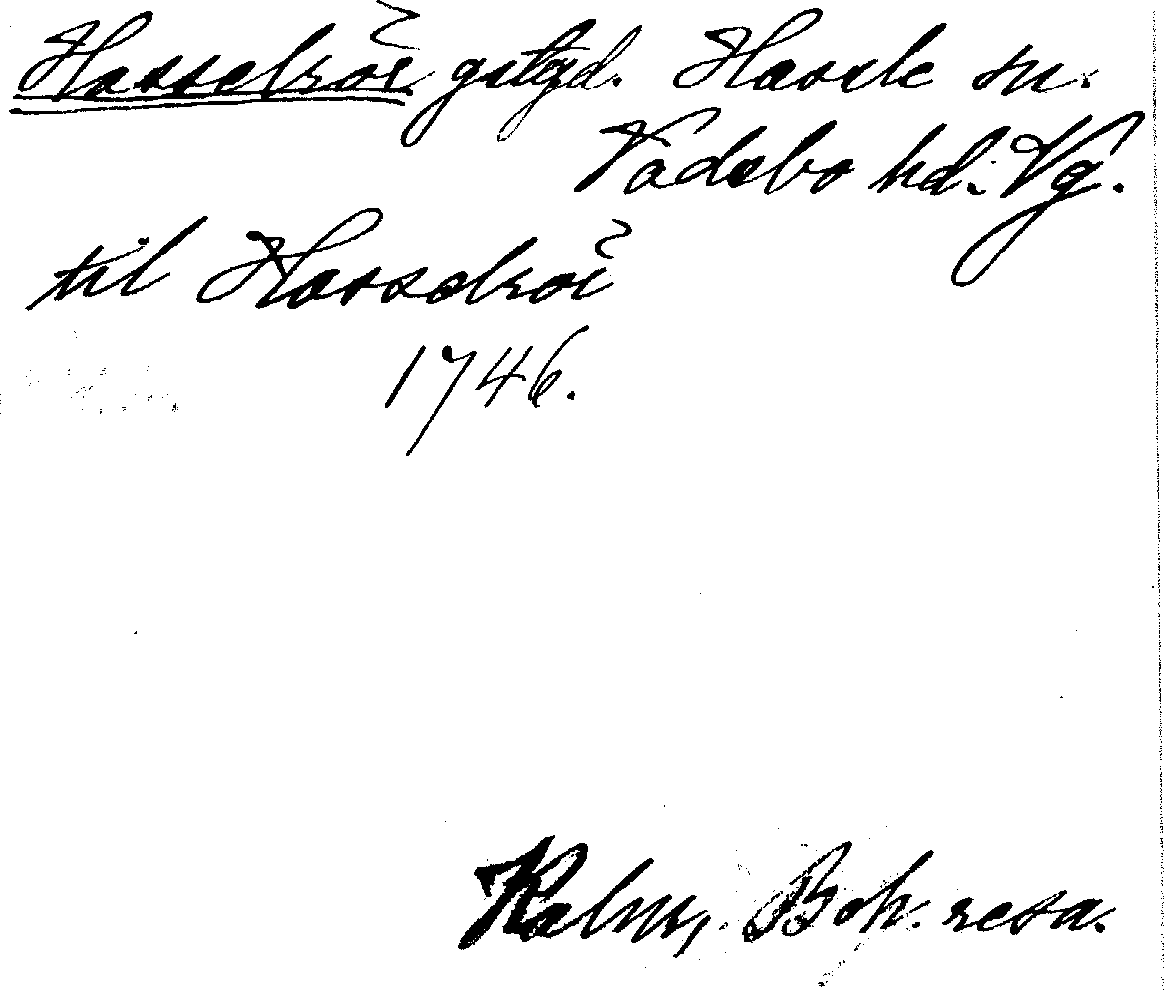 Hasselrör gstgd. Hassle sn.
Vadsbo hd. Vg.
til Hasselrör
1746.
Kalm, Boh. resa.